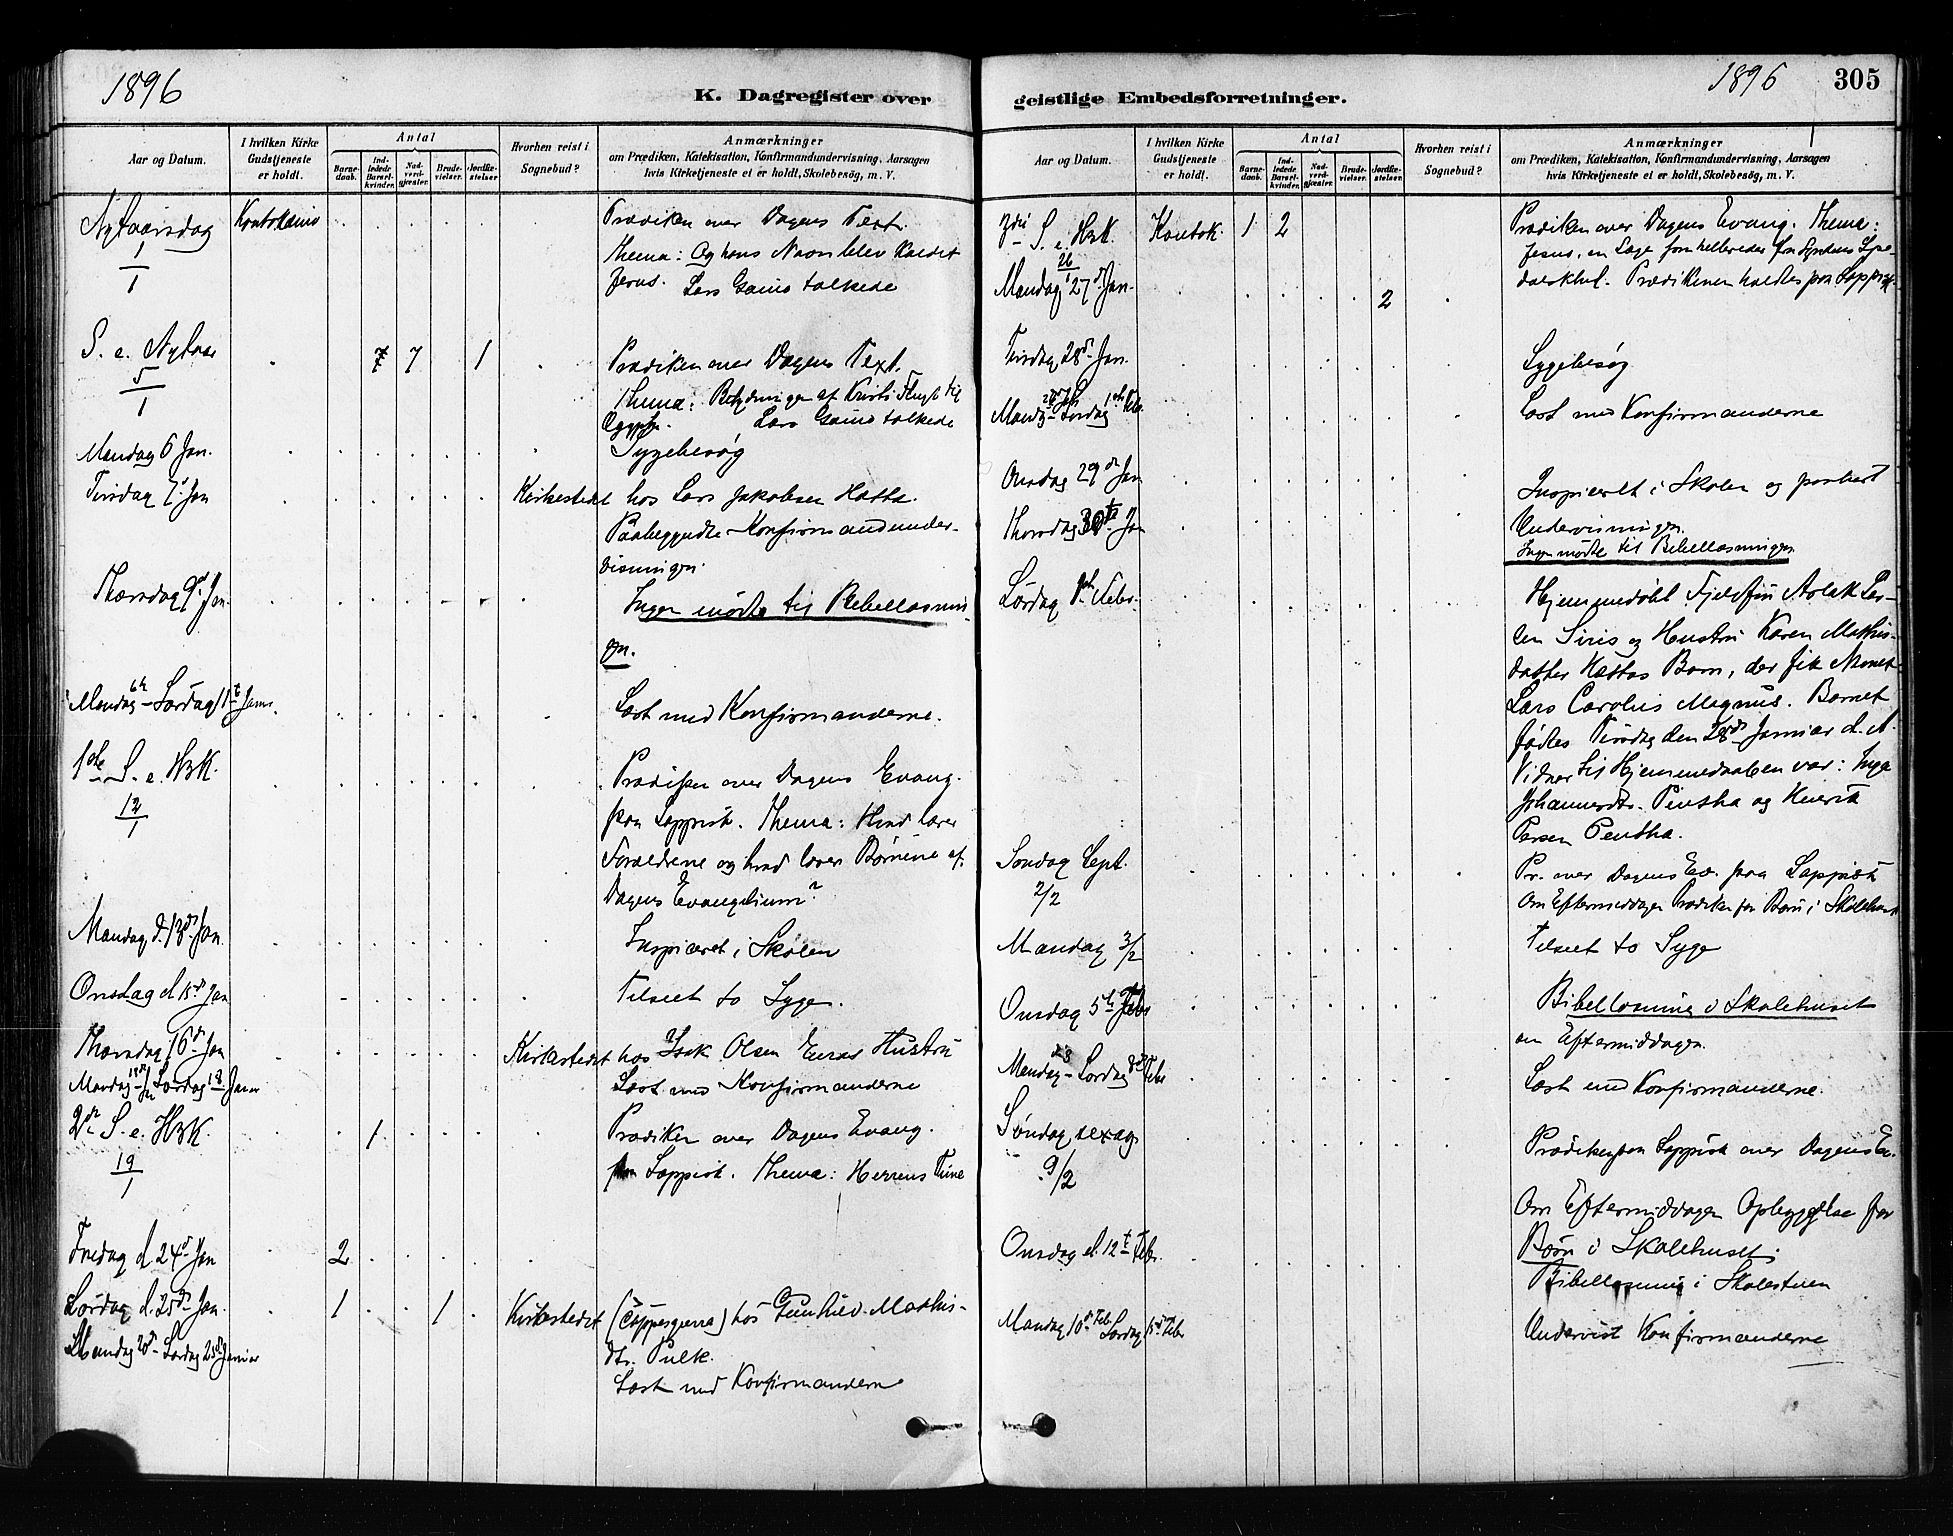 1896
K. Dagregister over
Aar og Datum.
I hvilken Kirke Gudstjeneste er holdt.
Antal
Barne-daab.
Ind-ledede Barsel-kvinder.
Nad-verd-gjæster.
Brude-vielser.
Jordfæ-stelser
Hvorhen reist i Sognebud?
Anmærkninger
om Prædiken, Katekisation, Konfirmandundervisning, Aarsagen
hvis Kirketjeneste ei er holdt, Skolebesøg, m. V.
Nytaarsdag 1/1 Kautokeino Prædiken over Dagens Text.
Thema: Og hans Navn blev kaldet
Jesus. Lars Gaino tolkede
S. e. Nytaar 5/1 7 7 1 Prædiken over Dagens Text.
Thema: Betydningen af Kristi Flugt til
Ægypten. Lars Gaino tolkede
Mandag 6 Jan. Sygebesøg
Tirsdag 7de Jan Kirkestedet hos Lars Jakobsen Hætta.
Paabegyndte Konfirmandunder-
visningen.
Thorsdag 9d Jan. Ingen mødte til Bibellæsnin-
gen.
Mandag 6te - Lørdag 11t Janr. Læst med Konfirmanderne.
1ste S. e. H3K. 12/1 Prædiken over Dagens Evang.
paa Lappisk. Thema: Hvad lærer
Forældrene og hvad lærer Børnene af
Dagens Evangelium?
Mandag d. 13de Jan. Inspiceret i Skolen
Onsdag d 15de Jan Tilseet to Syge.
Thorsdag 16d Jan Kirkestedet hos Isak Olsen Hustru
Mandag 13de - Lørdag 18 Janr Læst med Konfirmanderne
2de S. e. H3K. 19/1 1 Prædiken over Dagens Evang.
paa Lappisk. Thema: Herrens Time
Fredag d 24d Jan 2
Lørdag d. 25de Jan. 1 1 Kirkestedet hos Gunhild Mathis-
dtr. Pulk.
Mandag 20d - Lørdag 25d Januar Læst med Konfirmanderne
1896
305
geistlige Embedsforretninger.
Aar og Datum.
I hvilken Kirke Gudstjeneste er holdt.
Antal
Barne-daab.
Ind-ledede Barsel-kvinder.
Nad-verd-gjæster.
Brude-vielser.
Jordfæ-stelser
Hvorhen reist i Sognebud?
Anmærkninger
om Prædiken, Katekisation, Konfirmandundervisning, Aarsagen
hvis Kirketjeneste ei er holdt, Skolebesøg, m. V.
3die S. e. H3K. 26/1 Kautok 1 2 Prædiken over Dagens Evang. Thema:
Jesus, en Læge som helbreder fra Syndens
Prædikenen holdtes paa Lappisk.
Mandag 27d Jan. 2
Tirsdag 28d Jan. Sygebesøg
Lørdag 1ste Febr. Læst med Konfirmanderne
Onsdag 29de Jan Inspiceret i Skolen og paahørt
Undervisningen.
Thorsdag 30te Jan Ingen mødte til Bibellæsningen
Lørdag 1ste Febr. Hjemmedøbt Fjeldfin Aslak Per-
sen Siris og Hustru Karen Mathis-
datter Hættas Barn, der fik Navnet
Lars Carolus Magnus. Barnet
fødtes Tirsdag den 28de Januar d. A.
Vidner til Hjemmedaaben var: Inga
Johannesdtr. Pentha og Henrik
Persen Pentha.
Søndag Sept. 2/2 Pr. over Dagens Ev. paa Lappisk
Om Eftermiddagen Prædiken for Børn i Skolehuset
Mandag 3/2 Tilseet to Syge
Onsdag 5te Febr Bibellæsning i Skolehuset
om Eftermiddagen.
Mandag - Lørdag 8de Febr Læst med Konfirmanderne.
Søndag sexag. 9/2 Prædiken paa Lappisk over Dagens Ev.
Om Eftermiddagen Opbyggelse for
Børn i Skolehuset.
Onsdag d. 12t Febr. Bibellæsning i Skolestuen
Mandag 10d Febr. Lørdag 15d Febr Undervist Konfirmanderne